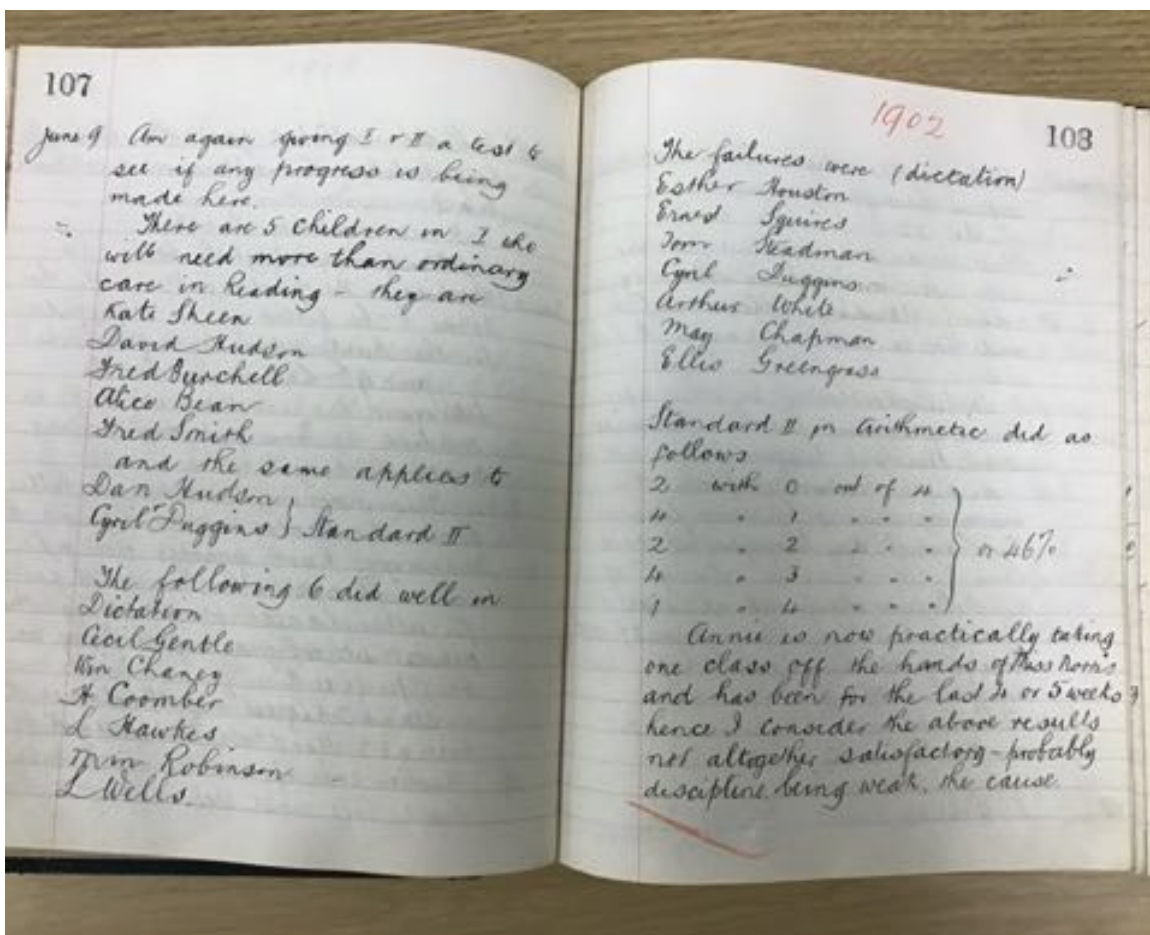 107
June 9 Am again giving I & II a test to
see if any progress is being
made here.
There are 5 children in I who
will need more than ordinary
care in Reading - they are
Kate Sheen
David Hudson
Fred Burchell
Alice Bean
Fred Smith
and the same applies to
Dan Hudson }
Cyril Duggins } Standard II
The following 6 did well in
Dictation
Cecil Gentle
Wm Chaney
H Coomber
L Hawkes
Robinson
L Wells
1902
108
The failures were (dictation)
Esther Houston
Ernest Squires
Tom Steadman
Cyril Duggins
Arthur White
May Chapman
Ellis Greengrass
Standard II in Arithmetic did as
follows
2 with 0 out of 4
4 " 1 " " "
2 " 2 " " " } or 46%
4 " 3 " " "
1 " 4 " " "
Annie is now practically taking
one class off the hands of Miss
and has been for the last 4 or 5 weeks
hence I consider the above results
not altogether satisfactory - probably
discipline being weak, the cause.